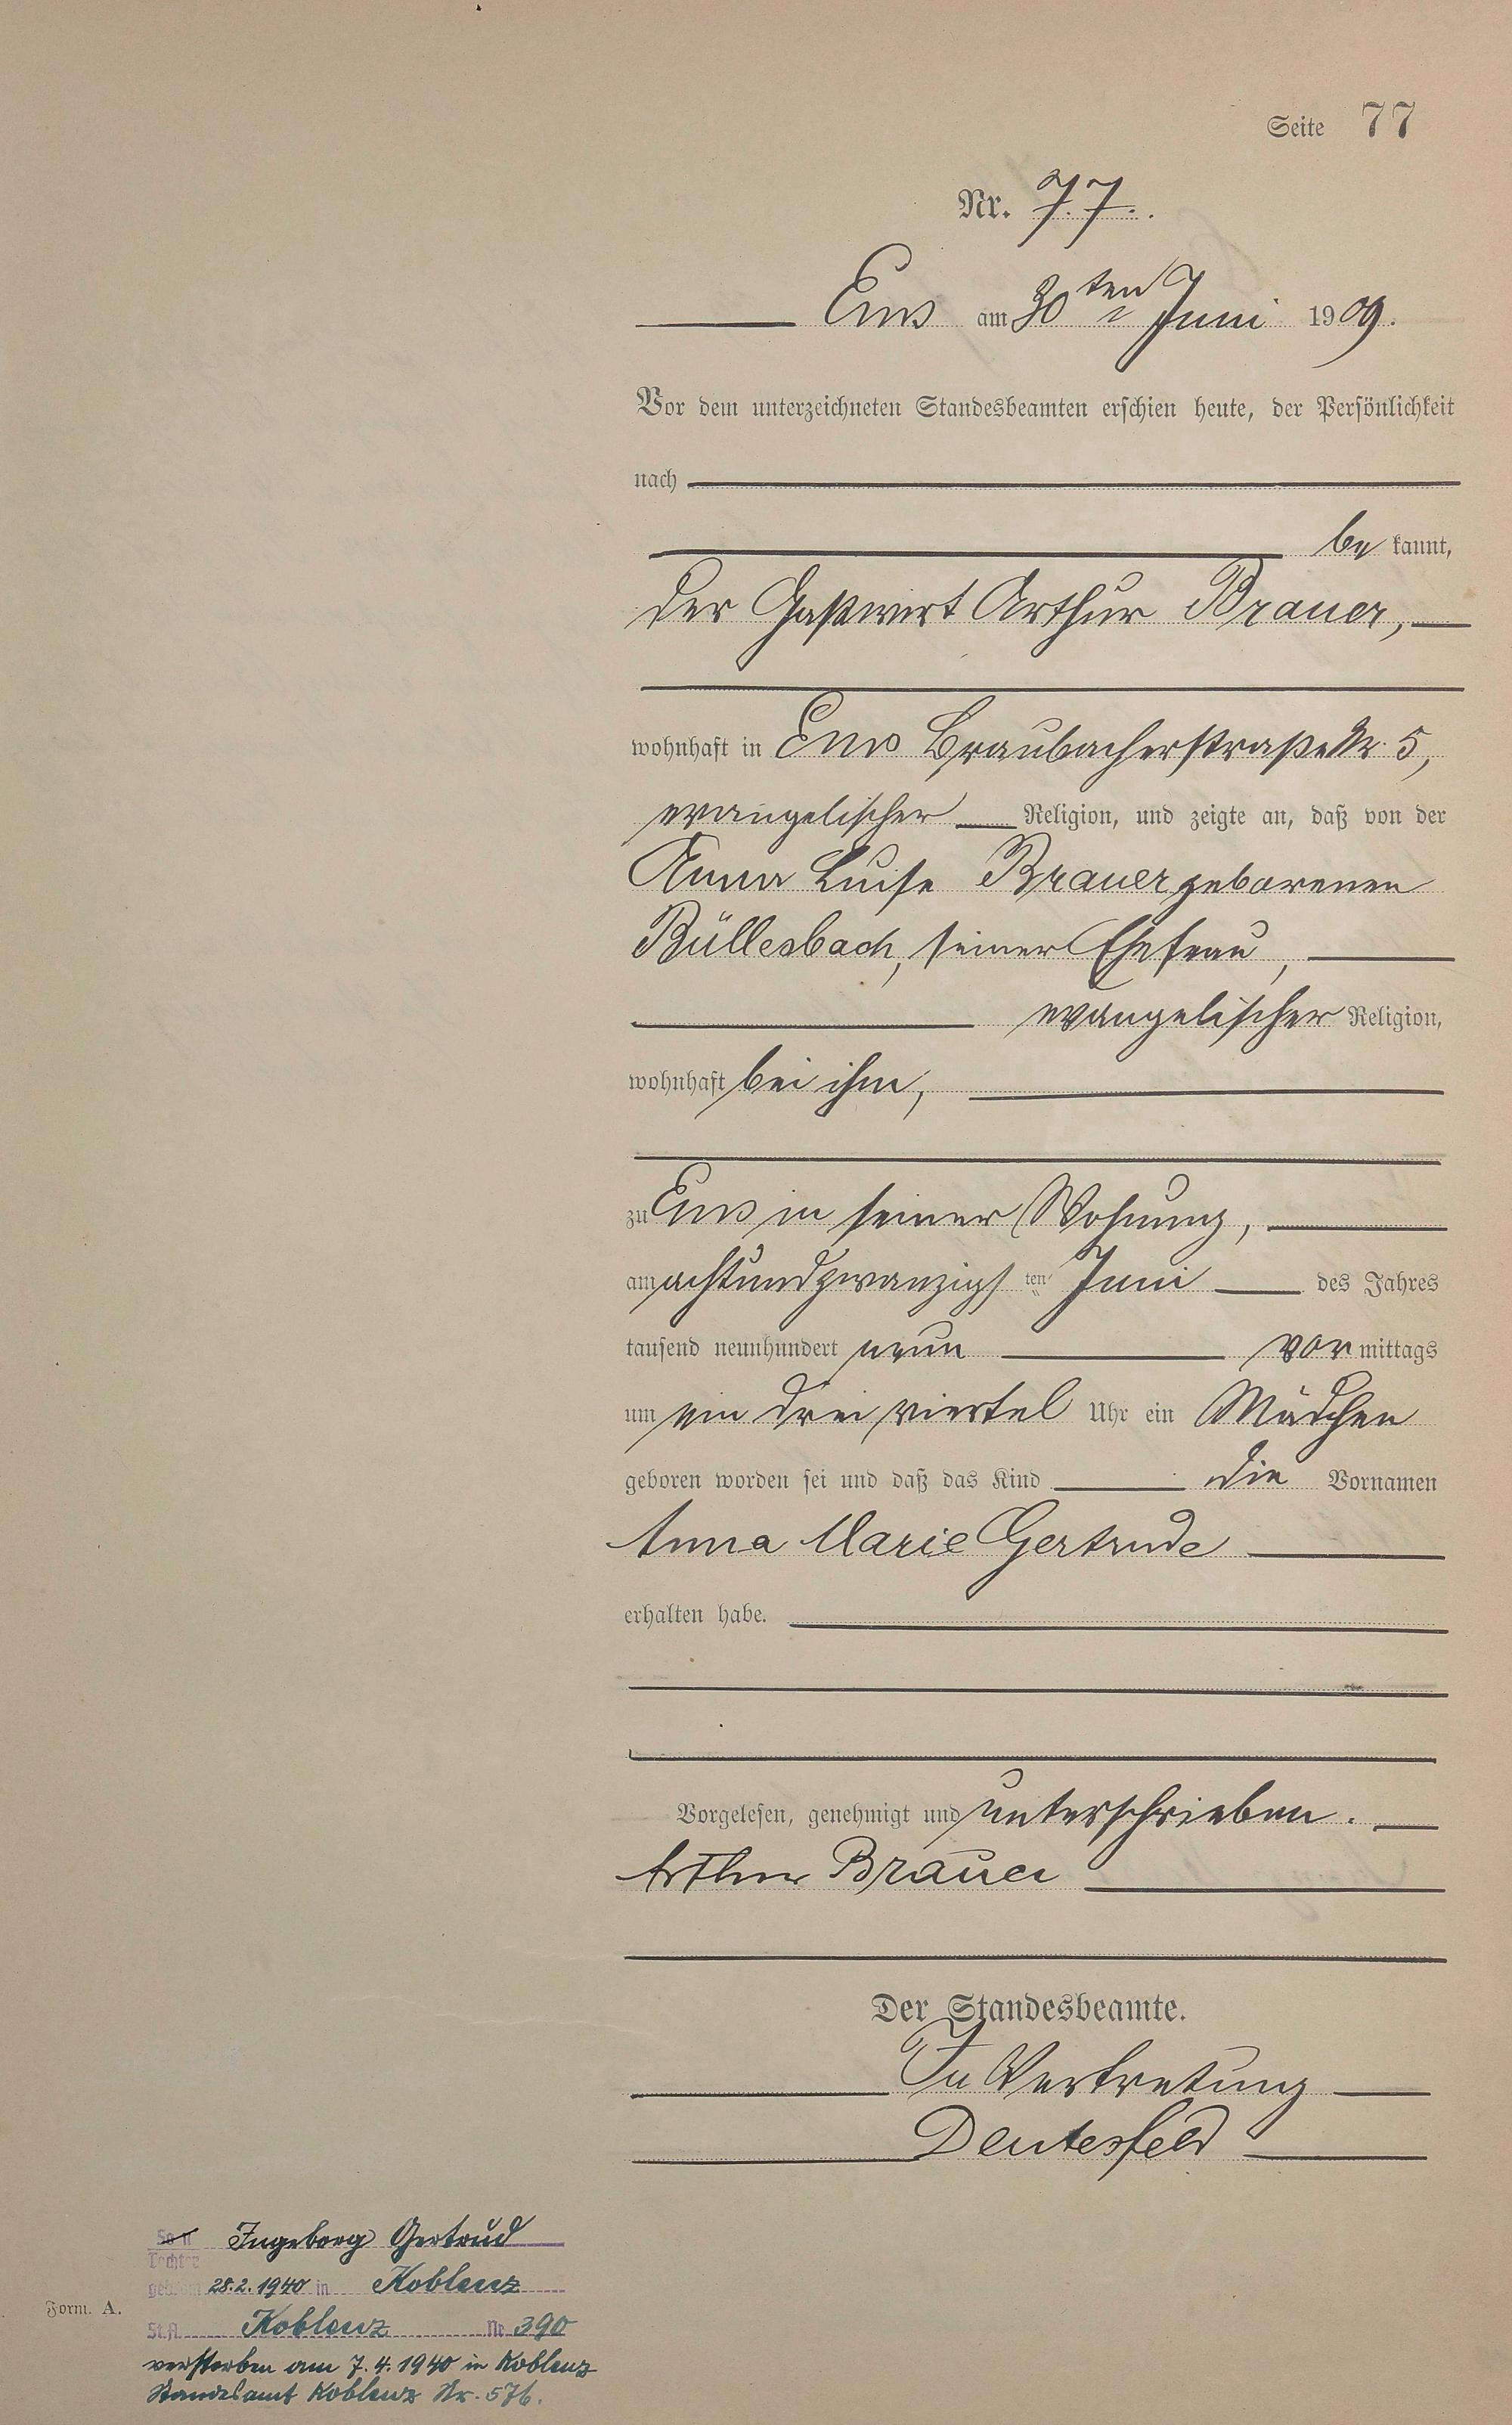 Seite 77
Nr. 77.
Ems am 30ten Juni 1909.
Vor dem unterzeichneten Standesbeamten erschien heute, der Persönlichkeit
nach
be kannt,
der Gastwirt Arthur Brauer,
wohnhaft in Ems Braubacherstraße Nr. 5,
evangelischer Religion, und zeigte an, daß von der
Anna Luise Brauer geborenen
Büllesbach, seiner Ehefrau,
evangelischer Religion,
wohnhaft bei ihm,
zu Ems in seiner Wohnung,
am achtundzwanzigsten Juni des Jahres
tausend neunhundert neun vormittags
um ein drei viertel Uhr ein Mädchen
geboren worden sei und daß das Kind die Vornamen
Anna Marie Gertrude
erhalten habe.
Vorgelesen, genehmigt und unterschrieben.
Arthur Brauer
Der Standesbeamte.
In Vertretung
Deutesfeld
Sohn Ingeborg Gertrud
Tochter
geb. am 28.2.1940 in Koblenz
St.A. Koblenz Nr 390
Form. A.
verstorben am 7.4.1940 in Koblenz
Standesamt Koblenz Nr. 576.